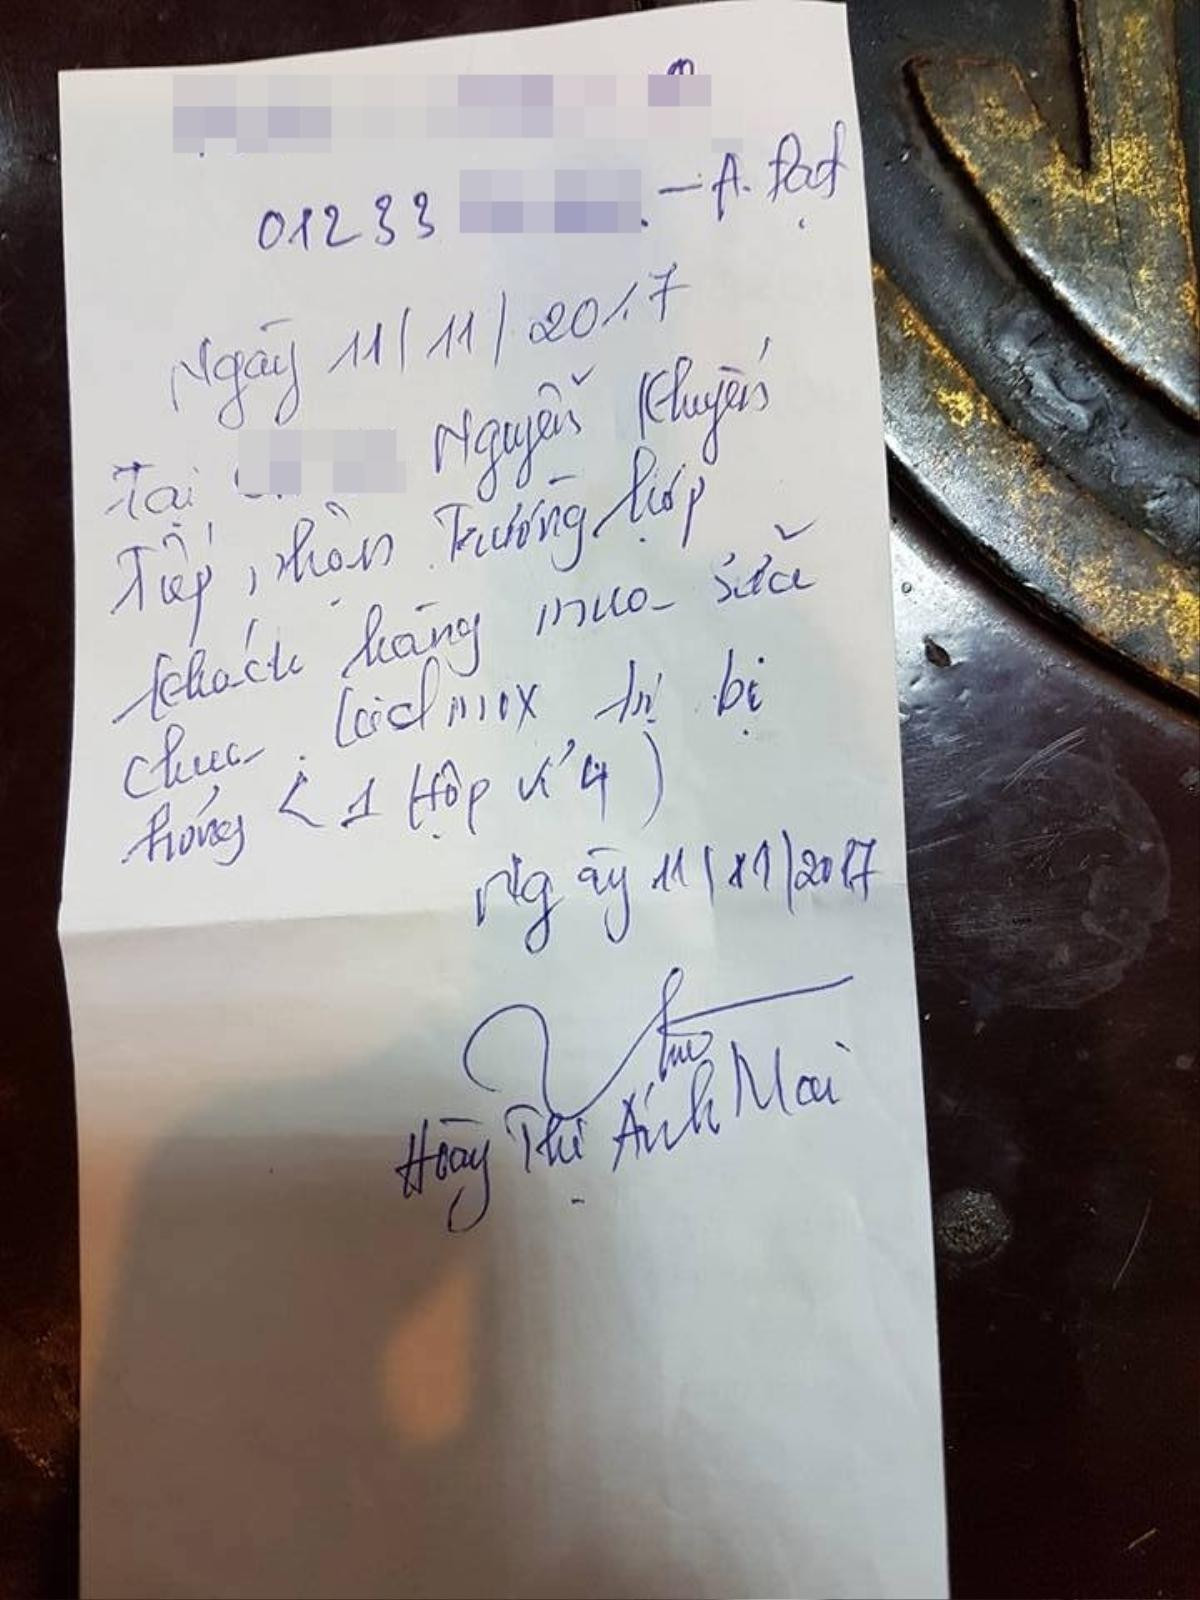 01233 - A. Đạt
Ngày 11/11/2017
Tại Nguyễn Khuyến
Tiếp nhận Trường hợp
khách hàng mua sữa
chua bị
hỏng (1 Hộp vỉ 4)
Ngày 11/11/2017
Thị Ánh Mai